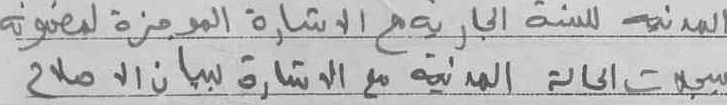 المدنية للسنة الجارية مع الاشارة الموجزة لمضمونه
سجلات الحالة المدنية مع الاشارة لبيان الاصلاح